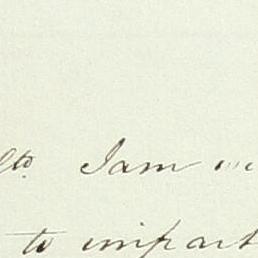 lto. I am
to impart